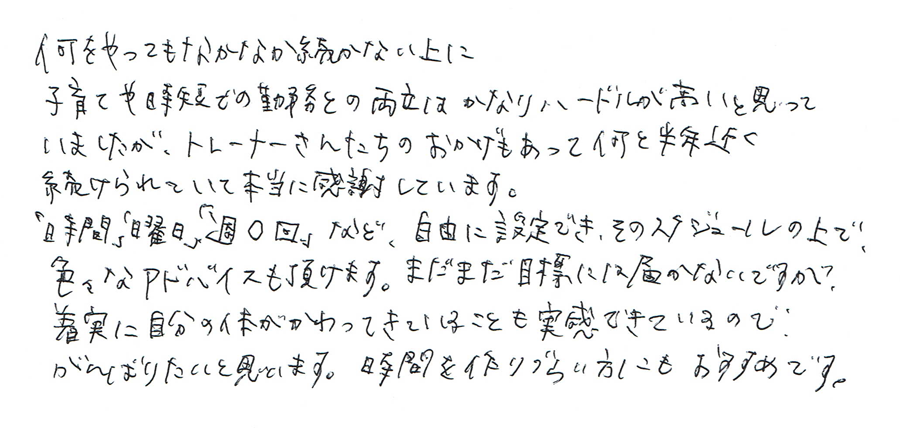 何をやってもなかなか続かない上に
子育てや時短での勤務との両立はかなりハードルが高いと思って
いましたが、トレーナーさんたちのおかげもあって何と半年近く
続けられていて本当に感謝しています。
「時間」「曜日」「週〇回」など、自由に設定でき、そのスケジュールの上で、
色々なアドバイスも頂けます。まだまだ目標には届かないですが、
着実に自分の体がかわってきていることも実感できているので、
がんばりたいと思います。時間を作りづらい方にもおすすめです。